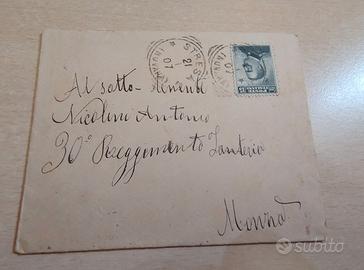 STRESA
21
07
(NOVARA)
Al sotto-tenente
Nicolini Antonio
30° Reggimento Fanteria
subito